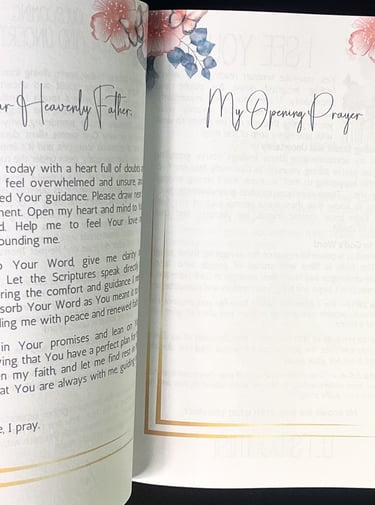 ur Heavenly Father,
today with a heart full of doubts
feel overwhelmed and unsure,
ed Your guidance. Please draw
ment. Open my heart and mind to
d. Help me to feel Your love
ounding me.
o Your Word, give me clarity
Let the Scriptures speak directly
ring the comfort and guidance I
sorb Your Word as You meant it to
ling me with peace and renewed
in Your promises and lean on
ving that You have a perfect plan
en my faith, and let me find rest
at You are always with me, guiding
e, I pray.
My Opening Prayer